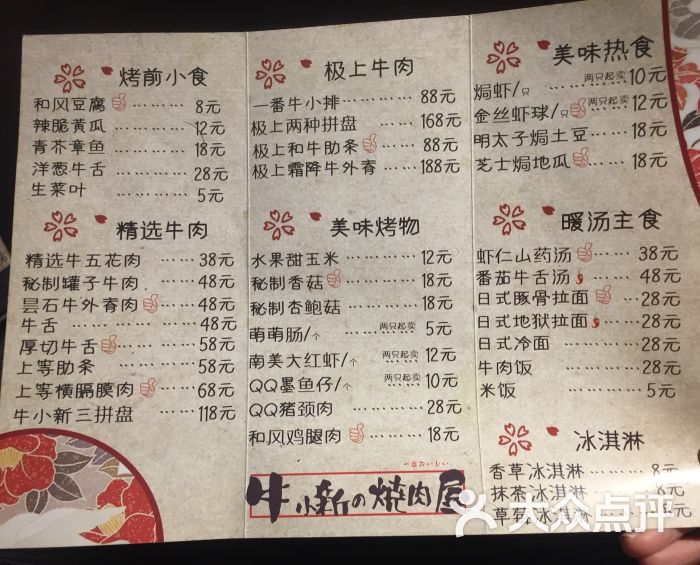 烤前小食
和风豆腐 ……… 8元
辣脆黄瓜 ……… 12元
青芥章鱼 ……… 18元
洋葱牛舌 ……… 28元
生菜叶 ……… 5元
精选牛肉
精选牛五花肉 …… 38元
秘制罐子牛肉 …… 48元
昙石牛外脊肉 …… 48元
牛舌 ……… 48元
厚切牛舌 ……… 58元
上等肋条 ……… 58元
上等横隔膜肉 …… 68元
牛小新三拼盘 …… 118元
极上牛肉
一番牛小排 ……… 88元
极上两种拼盘 …… 168元
极上和牛肋条 …… 88元
极上霜降牛外脊 …… 188元
美味烤物
水果甜玉米 ……… 12元
秘制香菇 ……… 18元
秘制杏鲍菇 ……… 18元
萌萌肠/个 两只起卖 5元
南美大红虾/个 两只起卖 12元
QQ墨鱼仔/个 两只起卖 10元
QQ猪颈肉 ……… 28元
和风鸡腿肉 ……… 18元
一番おいしい
牛小新の焼肉屋
美味热食
焗虾/只 两只起卖 10元
金丝虾球/只 两只起卖 12元
明太子焗土豆 …… 18元
芝士焗地瓜 …… 18元
暖汤主食
虾仁山药汤 …… 38元
番茄牛舌汤 …… 48元
日式豚骨拉面 …… 28元
日式地狱拉面 …… 28元
日式冷面 ……… 28元
牛肉饭 ……… 28元
米饭 ……… 5元
冰淇淋
香草冰淇淋 …… 8元
抹茶冰淇淋
草莓冰淇淋
大众点评